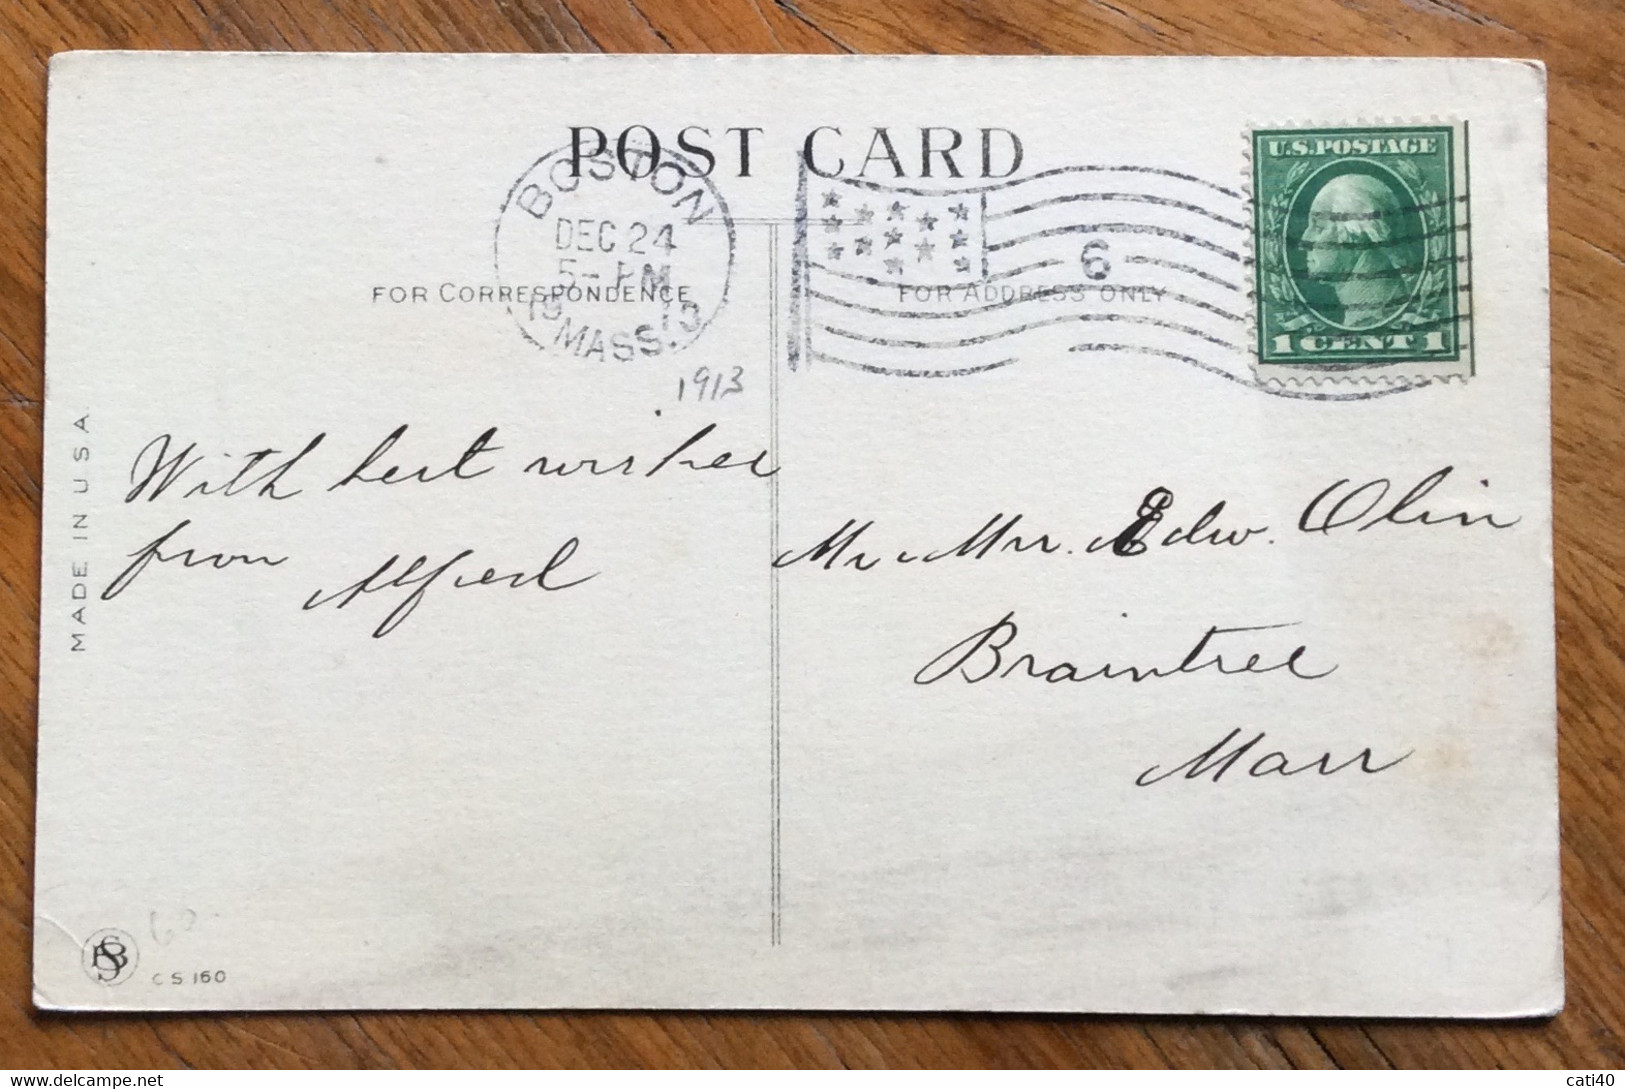 POST CARD
BOSTON
DEC 24
5- PM
1913
MASS.
6
U.S. POSTAGE
1 CENT 1
FOR CORRESPONDENCE
FOR ADDRESS ONLY
1913
With best wishes
from Alfred
Mr. & Mrs. Edw. Olin
Braintree
Mass
MADE IN U S A
CS 160
60
cati40